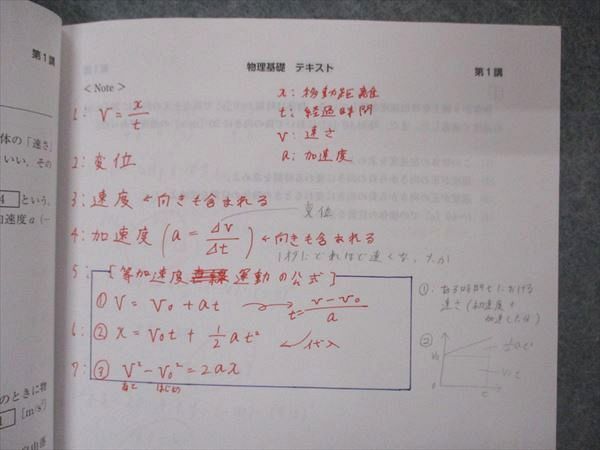 第1講
物理基礎 テキスト
第1講
< Note >
x: 移動距離
t: 経過時間
v: 速さ
a: 加速度
1: V = x/t
2: 変位
3: 速度 ← 向きも含まれる
変位
4: 加速度 ( a = Δv/Δt ) ← 向きも含まれる
1秒にどれほど速くなったか
5: [ 等加速度 運動の公式 ]
① V = V₀ + at → t = (v - v₀)/a
6: ② x = V₀t + 1/2 at² ↙代入
7: ③ V² - V₀² = 2ax
あと はじめ
①: ある時間tにおける
速さ (初速度+
加速した分)
②
V₀
1/2 at²
V₀t
0
t
体の「速さ」
いい, その
4 という。
加速度a (−
のときに物
[m/s²]
自由落